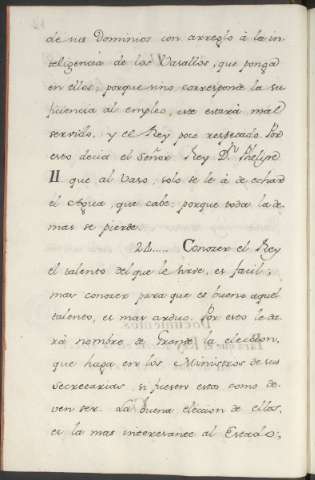 de sus Dominios con arreglo á la in-
teligencia de los Vasallos, que ponga
en ellos; porque sino corresponde la su
ficiencia al empleo, este estará mal
servido, y el Rey poco respetado. Por
esto decia el Señor Rey D.n Phelipe
II que al Vaso, solo se le á de echar
el Agua, que cabe: porque toda la de-
mas se pierde.
24..... Conozer el Rey
el talento del que le sirve, es facil;
mas conozer para que es bueno aquel
talento, es mas arduo. Por esto le da-
rá nombre de Grande la eleccion,
que haga en los Ministros de sus
Secretarias, si fuesen estos como de-
ven ser. La buena eleccion de ellos,
es la mas interesante al Estado;